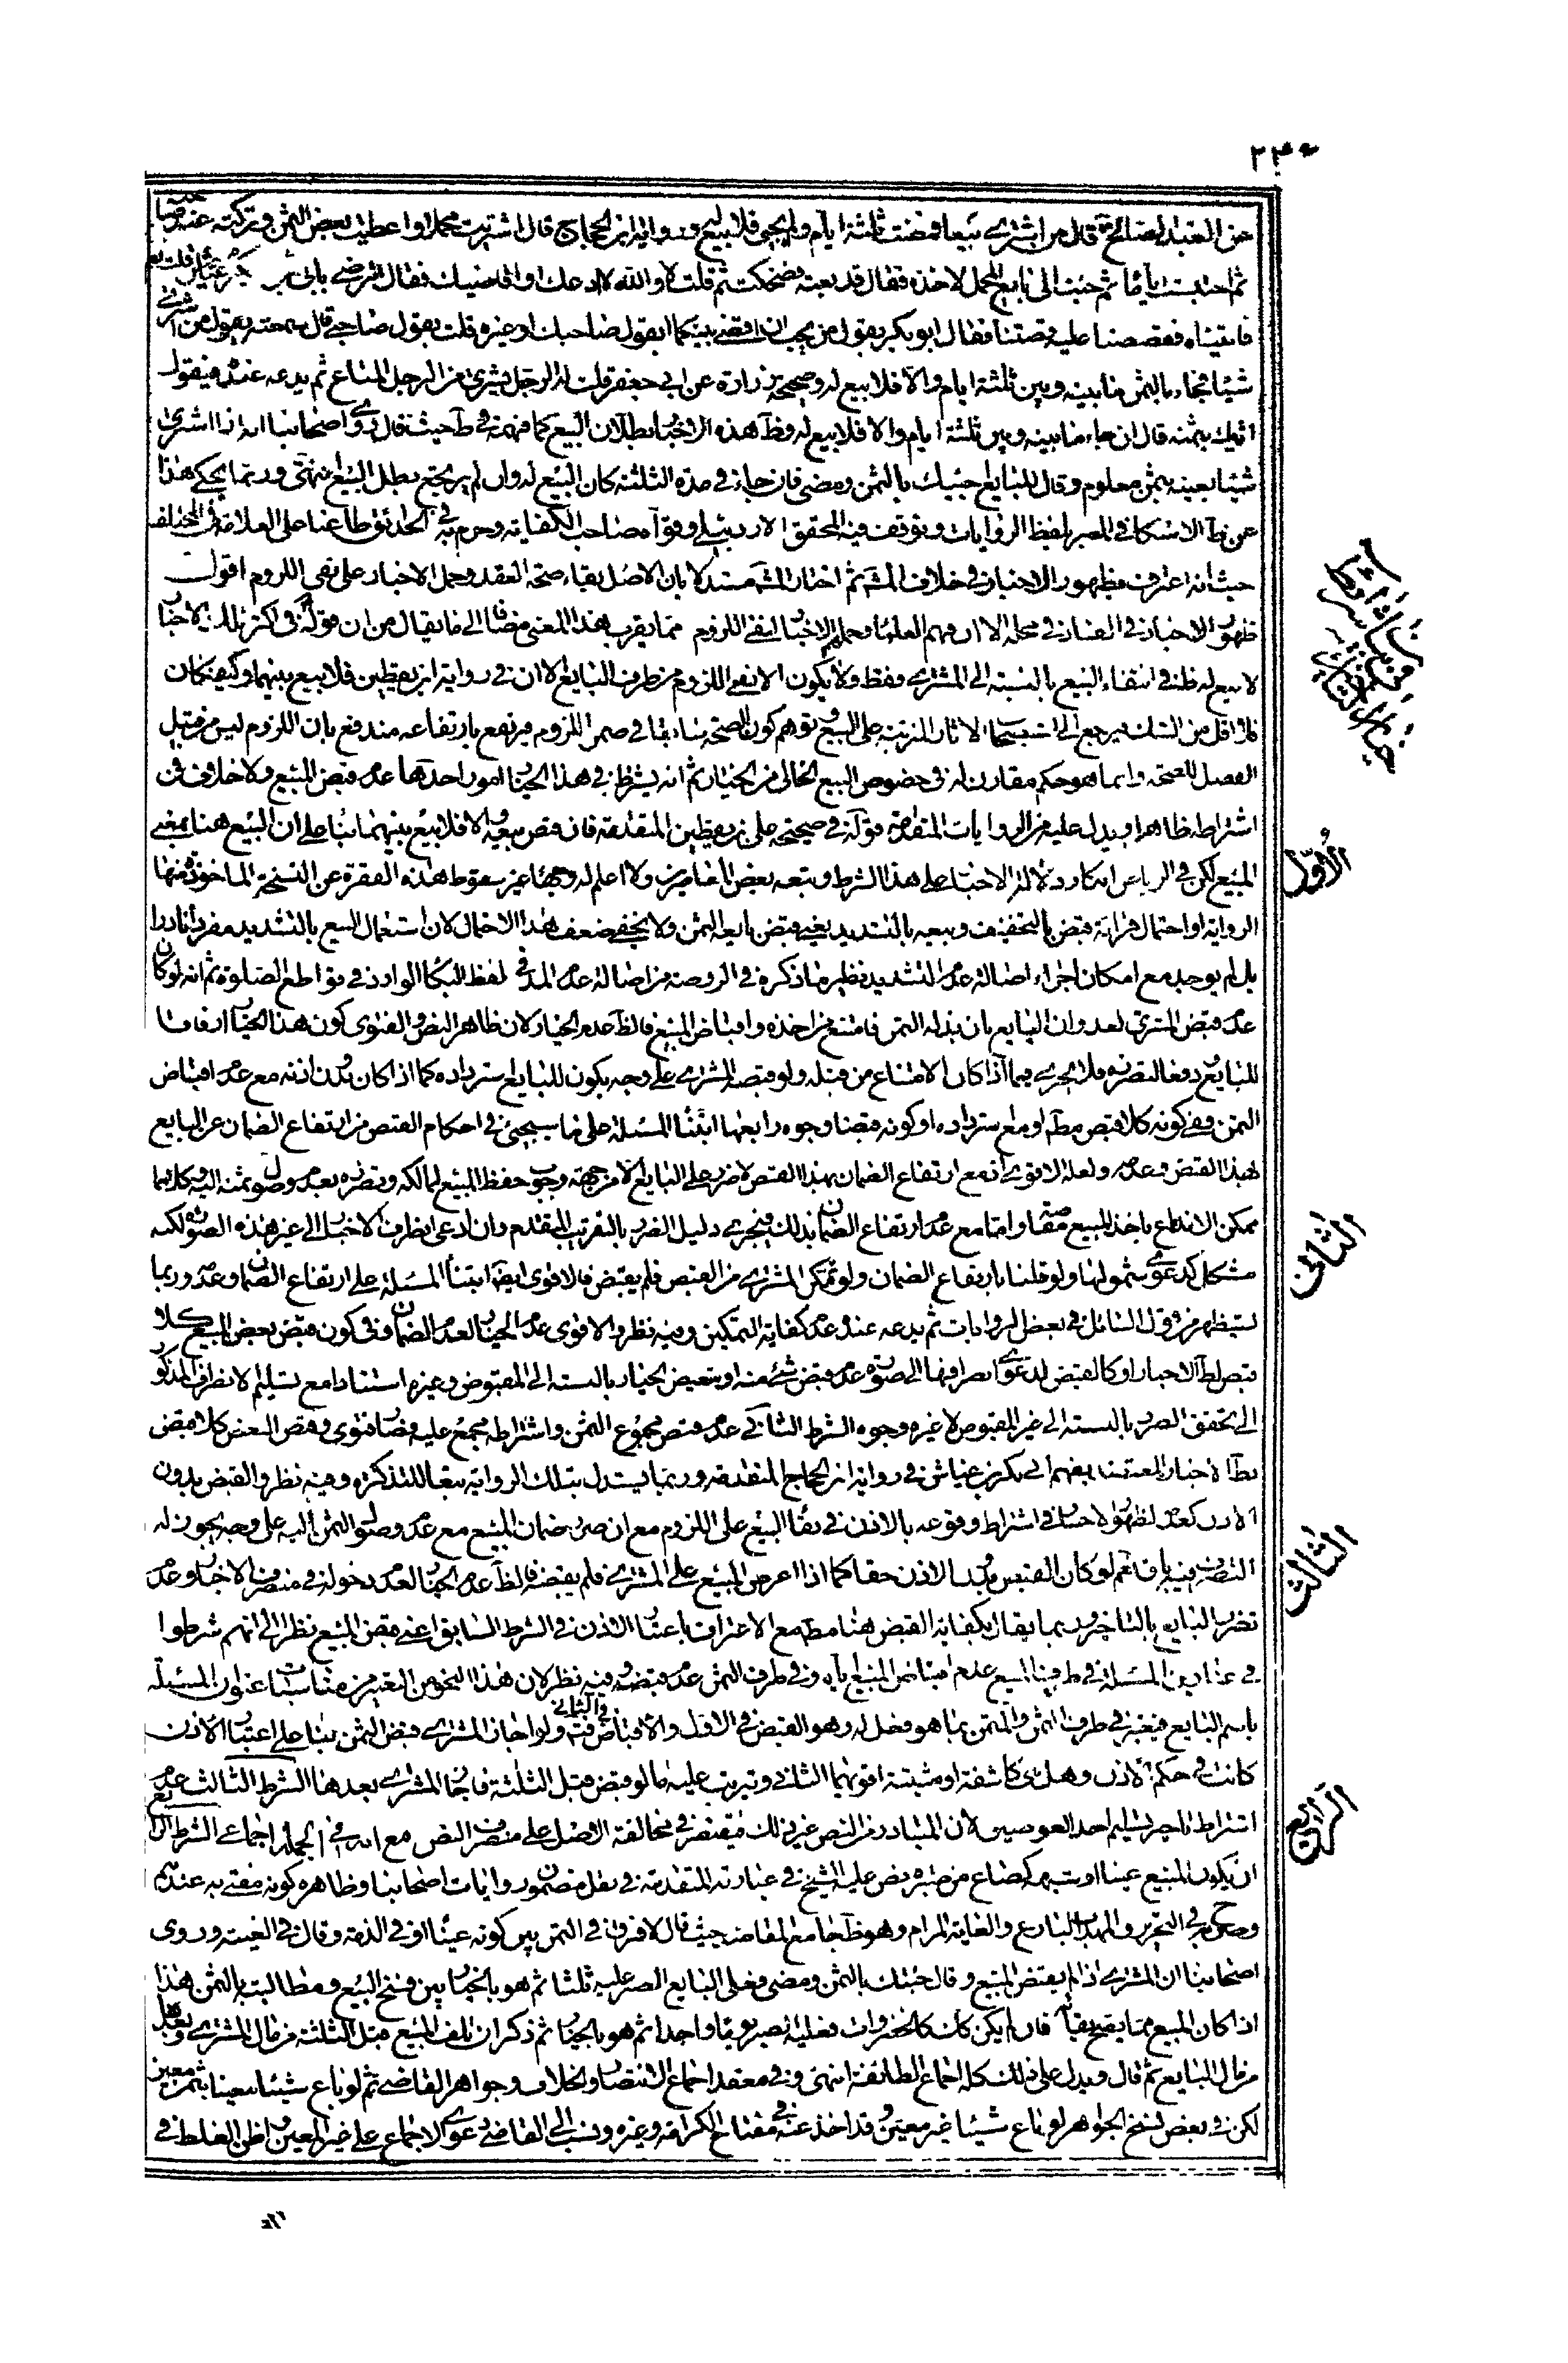 عن العبد الصالح قال من اشترى بيعا فمضت ثلثة ايام ولم يجئ فلا بيع له ورواية ابن الحجاج قال اشتريت محملا واعطيت بعض الثمن وتركته عند صاحبه
ثم احتبست اياما ثم جئت الى بايع المحمل لاخذه فقال قد بعته فضحكت ثم قلت لا والله لا ادعك او اقاضيك فقال اترضى بابي بكر بن عياش قلت نعم
فاتيناه فقصصنا عليه قصتنا فقال ابو بكر بقول من يحب ان اقضي بينكما ابقول صاحبك او غيره قلت بقول صاحبي قال سمعته يقول من اشترى
شيئا فجاء بالثمن ما بينه وبين ثلثة ايام والا فلا بيع له وصحيحة زرارة عن ابي جعفر قلت له الرجل يشتري من الرجل المتاع ثم يدعه عنده فيقول
اتيك بثمنه قال ان جاء ما بينه وبين ثلثة ايام والا فلا بيع له وظ هذه الاخبار بطلان البيع كما فهمه في ط حيث قال روى اصحابنا انه اذا اشترى
شيئا بعينه بثمن معلوم وقال للبايع اجيئك بالثمن ومضى فان جاء في مدة الثلثة كان البيع له وان لم يرجع بطل البيع انتهى وربما يحكى هذا
عن ظ الاسكافي المعبر بلفظ الروايات وتوقف فيه المحقق الاردبيلي وقواه صاحب الكفاية وجزم به في الحدائق طاعنا على العلامة في المختلف
حيث انه اعترف بظهور الاخبار في خلاف المش ثم اختار المش مستدلا بان الاصل بقاء صحة العقد وحمل الاخبار على نفي اللزوم اقول
ظهور الاخبار في الفساد في محله الا ان فهم العلماء وحملهم الاخبار على نفي اللزوم مما يقرب هذا المعنى مضافا الى ما يقال من ان قوله في اكثر تلك الاخبار
لا بيع له ظ في انتفاء البيع بالنسبة الى المشتري فقط ولا يكون الا نفي اللزوم من طرف البايع الا ان في رواية ابن يقطين فلا بيع بينهما وكيف كان
فلا اقل من الشك فيرجع الى استصحاب الاثار المترتبة على البيع وتوهم كون الصحة سابقا في ضمن اللزوم فيرتفع بارتفاعه مندفع بان اللزوم ليس من قبيل
الفصل للصحة وانما هو حكم مقارن له في خصوص البيع الخالي من الخيار ثم انه يشترط في هذا الخيار امور احدها عدم قبض المبيع ولا خلاف في
اشتراطه ظاهرا ويدل عليه من الروايات المتقدمة قوله في صحيحة علي بن يقطين المتقدمة فان قبض بيعه والا فلا بيع بينهما بناء على ان البيع هنا بمعنى
المبيع لكن في الرياض انكار دلالة الاخبار على هذا الشرط وتبعه بعض المعاصرين ولا اعلم له وجها غير سقوط هذه الفقرة عن النسخة الماخوذة منها
الرواية او احتمال قراءة قبض بالتخفيف وبيعه بالتشديد يعني قبض بايعه الثمن ولا يخفى ضعف هذا الاحتمال لان استعمال البيع بالتشديد مفردا نادر
بل لم يوجد مع امكان اجراء اصالة عدم التشديد نظير ما ذكره في الروضة من اصالة عدم المد في لفظ البكا الوارد في قواطع الصلوة ثم انه لو كان
عدم قبض المشتري لعدوان البايع بان بذله الثمن فامتنع من اخذه واقباض المبيع فالظ عدم الخيار لان ظاهر النص والفتوى كون هذا الخيار ارفاقا
للبايع ودفعا لتضرره فلا يجري فيما اذا كان الامتناع من قبله ولو قبضه المشتري على وجه يكون للبايع استرداده كما اذا كان بدون اذنه مع عدم اقباض
الثمن ففي كونه كلا قبض مط او مع استرداده او كونه قبضا وجوه رابعها ابتناء المسئلة على ما سيجئ في احكام القبض من ارتفاع الضمان عن البايع
بهذا القبض وعدمه ولعله الاقوى اذ مع ارتفاع الضمان بهذا القبض لا ضرر على البايع الا من جهة وجوب حفظ المبيع لمالكه وتضرره بعدم وصول ثمنه اليه وكلاهما
ممكن الاندفاع باخذ المبيع مقاصة واما مع عدم ارتفاع الضمان بذلك فيجري دليل الضرر بالتقريب المتقدم وان ادعي انصراف الاخبار الى غير هذه الصورة لكنه
مشكل كدعوى شمولها ولو قلنا بارتفاع الضمان ولو تمكن المشتري من القبض فلم يقبض فالاقوى ايضا ابتناء المسئلة على ارتفاع الضمان وعدمه وربما
يستظهر من قول السائل في بعض الروايات ثم يدعه عنده عدم كفاية التمكين وفيه نظر والاقوى عدم الخيار لعدم الضمان وفي كون قبض بعض المبيع كلا
قبض لظ الاخبار او كالقبض لدعوى انصرافها الى صورة عدم قبض شئ منه او تبعيض الخيار بالنسبة الى المقبوض وغيره استنادا مع تسليم الانصراف المذكور
الى تحقق الضرر بالنسبة الى غير المقبوض لا غيره وجوه الشرط الثاني عدم قبض مجموع الثمن واشتراطه مجمع عليه نصا وفتوى وقبض البعض كلا قبض
لظ الاخبار المعتضد بفهم ابي بكر بن عياش في رواية ابن الحجاج المتقدمة وربما يستدل بتلك الرواية تبعا للتذكرة وفيه نظر والقبض بدون
الاذن كعدمه لظهور الاخبار في اشتراط وقوعه بالاذن في بقاء البيع على اللزوم مع ان ضرر ضمان المبيع مع عدم وصول الثمن اليه على وجه يجوز له
التصرف فيه باق نعم لو كان القبض بدون الاذن حقا كما اذا عرض المبيع على المشتري فلم يقبضه فالظ عدم الخيار لعدم دخوله في منصرف الاخبار وعدم
تضرر البايع بالتاخير وربما يقال بكفاية القبض هنا مط مع الاعتراف باعتبار الاذن في الشرط السابق اعني قبض المبيع نظرا الى انهم شرطوا
في عناوين المسئلة في طرف المبيع عدم اقباض المبيع اياه وفي طرف الثمن عدم قبضه وفيه نظر لان هذا النحو من التعبير من مناسبات عنوان المسئلة
باسم البايع فيعبر في طرف الثمن والمثمن بما هو فعل له وهو القبض في الاول والاقباض في الثاني فت ولو اجاز المشتري قبض الثمن بناء على اعتبار الاذن
كانت في حكم الاذن وهل هي كاشفة او مثبتة اقويهما الثاني ويترتب عليه ما لو قبض قبل الثلثة فاجاز المشتري بعدها الشرط الثالث عدم
اشتراط تاخير تسليم احد العوضين لان المتبادر من النص غير ذلك فيقتصر في مخالفة الاصل على منصرف النص مع انه في الجملة اجماعي الشرط الرابع
ان يكون المبيع عينا او شبهه كصاع من صبرة نص عليه الشيخ في عبارته المتقدمة في نقل مضمون روايات اصحابنا وظاهره كونه مفتى به عندهم
وصرح به في التحرير والمهذب البارع وغاية المرام وهو ظ جامع المقاصد حيث قال لا فرق في الثمن بين كونه عينا او في الذمة وقال في الغنية وروى
اصحابنا ان المشتري اذا لم يقبض المبيع وقال جئتك بالثمن ومضى فعلى البايع الصبر عليه ثلثا ثم هو بالخيار بين فسخ البيع ومطالبته بالثمن هذا
اذا كان المبيع مما يصح بقاؤه فان لم يكن كان كالخضروات فعليه الصبر يوما واحدا ثم هو بالخيار ثم ذكر ان تلف المبيع قبل الثلثة من مال المشتري وبعدها
من مال البايع ثم قال ويدل على ذلك كله اجماع الطائفة انتهى وفي معقد اجماع الانتصار والخلاف وجواهر القاضي ثم لو باع شيئا معينا بثمن معين
لكن في بعض نسخ الجواهر لو باع شيئا غير معين وقد اخذ عنه في مفتاح الكرامة وغيره ونسب الى القاضي دعوى الاجماع على غير المعين واظن الغلط في
الاول
الثاني
الثالث
الرابع